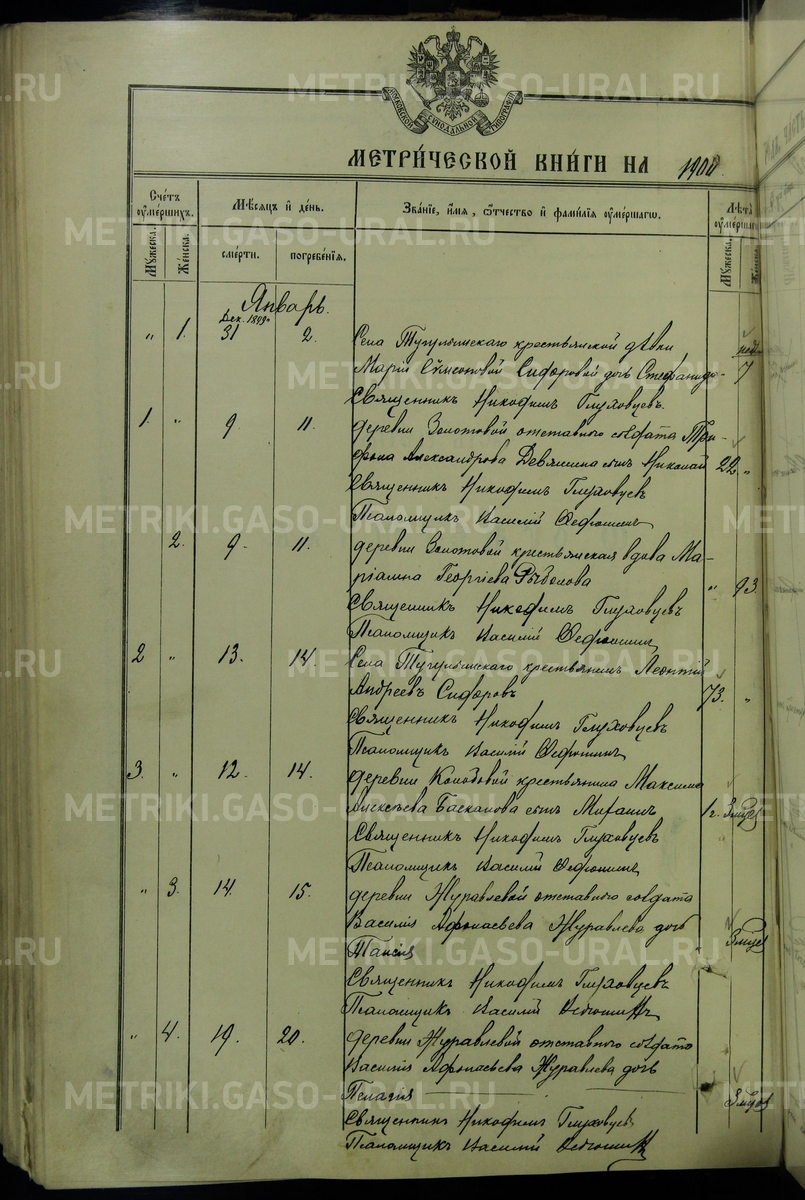 МОСКОВСКОЙ СѴНОДАЛЬНОЙ ТИПОГРАФІИ
МЕТРИ́ЧЕСКОЙ КНИ́ГИ НА 1900
Сче́тъ ᲂуме́ршихъ.
Му́жеска.
Же́нска.
Мѣ́сяцъ и де́нь.
сме́рти.
погребе́нія.
Зва́ніе, и́мя, ѻ́тчество и фами́лія ᲂуме́ршагѡ.
Лѣ́та ᲂуме́ршаг
Му́жеска.
Же́нск
Январь.
Дек. 1899
„ 1. 31 2. Села Тугулымскаго крестьянской дѣвки
Маріи Симеоновой Сидоровой дочь Стефанида 7
Священникъ Никодимъ Глуховцевъ.
1. „ 9. 11. деревни Золотовой отставного солдата Три-
фона Александрова Девяшина сынъ Николай 22 „
Священникъ Никодимъ Глуховцевъ
Псаломщикъ Василій Ѳефюшинъ
2. 9. 11. деревни Золотовой крестьянская вдова Ма-
ріамна Георгіева Рыболова „ 93.
Священникъ Никодимъ Глуховцевъ
Псаломщикъ Василій Ѳефюшинъ
2 „ 13. 14. Села Тугулымскаго крестьянинъ Леонтій
Андреевъ Сидоровъ 73. „
Священникъ Никодимъ Глуховцевъ
Псаломщикъ Василій Ѳефюшинъ
3. „ 12. 14. деревни Колобовой крестьянина Максима
Алексѣева Баскакова сынъ Михаилъ 1 г. 3 мѣсяц
Священникъ Никодимъ Глуховцевъ
Псаломщикъ Василій Ѳефюшинъ
„ 3. 14. 15. деревни Журавлевой отставного солдата
Василія Афонасьева Журавлева дочь
Таисія „ 3 мѣсяц
Священникъ Никодимъ Глуховцевъ
Псаломщикъ Василій Ѳефюшинъ
„ 4. 19. 20. деревни Журавлевой отставного солдата
Василія Афонасьева Журавлева дочь
Пелагія 3 мѣсяц
Священникъ Никодимъ Глуховцевъ
Псаломщикъ Василій Ѳефюшинъ
METRIKI.GASO-URAL.RU